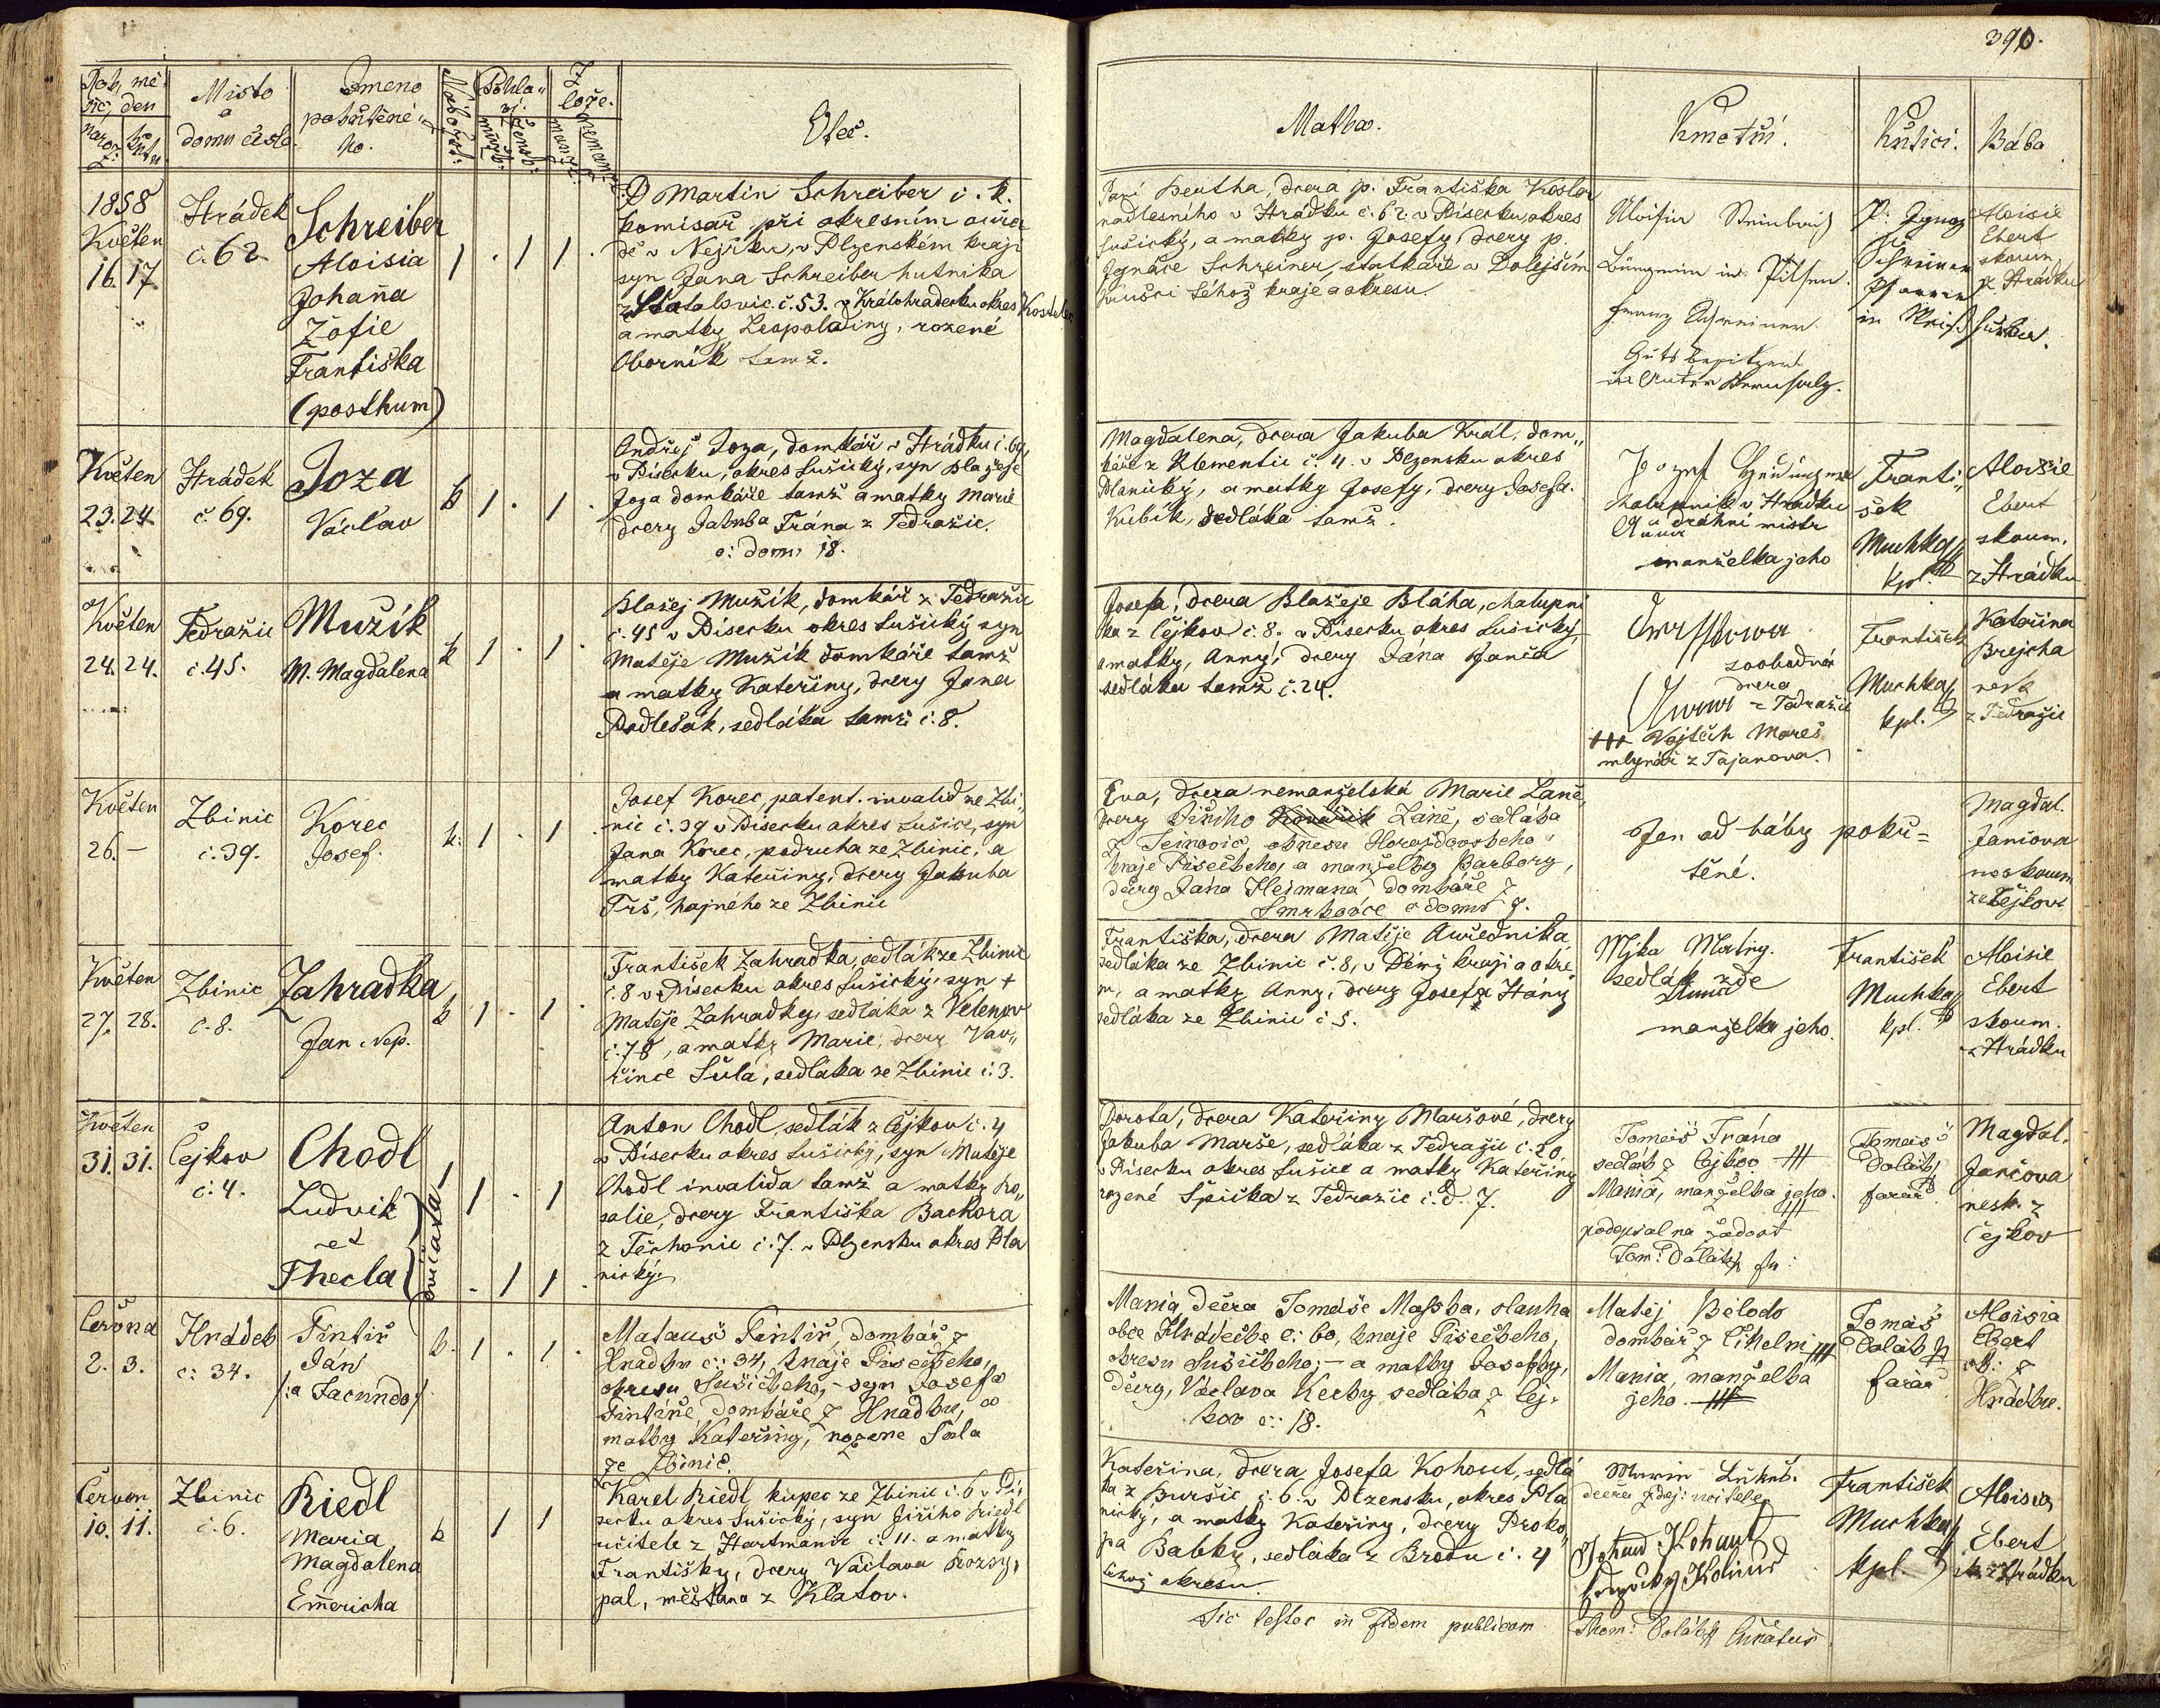 390.
Rok, mě-
síc, den
naroz:
křtu
Místo
a
domu číslo.
Jméno
pokřtěné-
ho.
Nábožst:
Pohla-
ví.
mužs:
žensk:
Z
lože.
manž:
nemanž:
Otec.
Matka.
Kmotři.
Křtící.
Bába
1858
Květen
16. 17.
Hrádek
č. 62
Schreiber
Aloisia
Johaña
Žofie
Františka
(posthum)
P Martin Schreiber c. k.
komisař při okresním ouřa
dě v Nejrku, v Plzenském kraji
syn Jana Schreiber hutníka
č. 53. v Králohradecku okres Kostelec
a matky Leopoldiny, rozené
Oborník tamž.
Paní dcera p. Františka
nadlesního v Hrádku č. 62. v Písecku, okres
Sušický, a matky p. Josefy, dcery p.
Ignáce Schreiner, statkáře v Dolejším
téhož kraje a okresu.
in Pilsen.
Franz Schreiner
P: Ignaz
Schreiner
Pfarrer
in
Aloisie
Ebert
skoum
z Hrádku
Květen
23. 24.
Hrádek
č. 69.
Joza
Václav
k
Ondřej Joza, domkář v Hrádku č. 69,
v Písecku, okres Sušický, syn Blažeje
Joza domkáře tamž a matky Marie
dcery Jakuba Trána z Tedražic.
č: domu 18.
Magdalena, dcera Jakuba Král, dom-
káře z Klementic č. 4. v Plzensku okres
Planický, a matky Josefy, dcery Josefa
Kubík, sedláka tamž.
Josef
chalupník v Hrádku
a dráhní mistr
Anna
manželka jeho
Franti-
šek
Muchka
kpl.
Aloisie
Ebert
skoum.
z Hrádku
Květen
24. 24.
Tedražic
č. 45.
Mužík
M. Magdalena
k
Blažej Mužík, domkář z Tedražic
č. 45 v Písecku okres Sušický syn
Matěje Mužík domkáře tamž
a matky Kateřiny, dcery Jana
Podlešák, sedláka tamž č. 8.
Josefa, dcera Blažeje Bláha, chalupní
ka z Čejkov č. 8. v Písecku okres Sušický,
a matky, Anny, dcery Jána Janča
sedláka tamž č. 24.
dcera
z Tedražic
+++ Vojtěch Mareš
mlynář z Tajanova.
František
Muchka
kpl.
Kateřina
Brejcha
nesk
z Tedražic
Květen
26. –
Zbinic
č. 39.
Korec
Josef.
k:
Josef Korec, patent. invalid ze Zbi-
nic č. 39 v Písecku okres Sušice, syn
Jana Korec, podruha ze Zbinic, a
matky Kateřiny, dcery Jakuba
Trš, hajného ze Zbinic
Eva, dcera nemanželská Marie Lanč,
dcery Jiřího Kovařík Lanč, sedláka
z okresu Horažďovského
kraje Píseckého, a manželky Barbory,
dcery Jána Hejmana domkáře z
Smrkovce č domu 7.
Jen od báby pokř=
těné.
Magdal.
Jančova
neskoum
z Čejkov
Květen
27. 28.
Zbinic
č. 8.
Zahradka
Jan Nep.
k
František Zahradka, sedlák ze Zbinic
č. 8 v Písecku okres Sušický, syn +
Matěje Zahradky, sedláka z Velenov
č. 78, a matky Marie, dcery Vav-
řince Šula, sedláka ze Zbinic č. 3.
Františka, dcera Matěje Auředníka
sedláka ze Zbinic č. 8, v Témž kraji a okre
m, a matky Anny, dcery Josefa Hány
sedláka ze Zbinic č. 5.
sedlák zde
manželka jeho
František
Muchka
kpl.
Aloisie
Ebert
skoum.
z Hrádku
Květen
31. 31.
Čejkov
č. 4.
Chodl
Ludvik
et
Thecla
dvojčata
Anton Chodl, sedlák z Čejkov č. 4
v Písecku okres Sušický, syn Matěje
Chodl invalida tamž a matky Ro-
salie, dcery Františka Backora
z Těchonic č. 7. v Plzensku okres Pla
nický.
Dorota, dcera Kateřiny Maršové, dcery
Jakuba Marše, sedláka z Tedražic č. 20.
v Písecku okres Sušice a matky Kateřiny
rozené Špička z Tedražic č. d. 7.
Tomáš Trána
sedlák z Čejkov +++
Maria, manželka jeho.
+++
podepsal na žádost
Tom: Dolátk far:
Tomáš
Dolátk
farář
Magdal.
Jančova
nesk. z
Čejkov
Června
2. 3.
Hrádek
č: 34.
Tintiř
Ján
/: a Facundo :/
k.
Matauš Tintiř, domkář z
Hradku č: 34, kraje Píseckého,
okresu Sušického, – syn Josefa
Tintíře, domkáře z Hradku, a
matky Kateřiny, rozene Sula
ze Zbinic.
Maria, dcera Tomáše slouha
obce Hrádecke č: 60, kraje Píseckého,
okresu Sušického; – a matky Josefky,
dcery, Václava sedláka z Čej-
kov č: 18.
Matěj
domkář z +++
Maria, manželka
jeho. +++
Tomáš
Dolátk
farář
Aloisia
Ebert
z
Hrádku.
Červen
10. 11.
Zbinic
č. 6.
Riedl
Maria
Magdalena
Emericha
k
Karel Riedl, kupec ze Zbinic č. 6 v Pí
secku okres Sušický, syn Jiřího Riedl
učitele z Hartmanic č. 11. a matky
Františky, dcery Václava Rozsy-
pal, měšťana z Klatov.
Kateřina, dcera Josefa Kohout, sedlá
ka z Buršic č. 6. v Plzensku, okres Pla
nický, a matky Kateřiny, dcery Proko-
pa Babky, sedláka z Brodu č. 4
téhož okresu.
dcera zdej: učitele
Kohout
František
Muchka
kpl.
Aloisia
Ebert
z Hrádku
Sic testor in fidem publicam
Thom: Dolátk Curatus